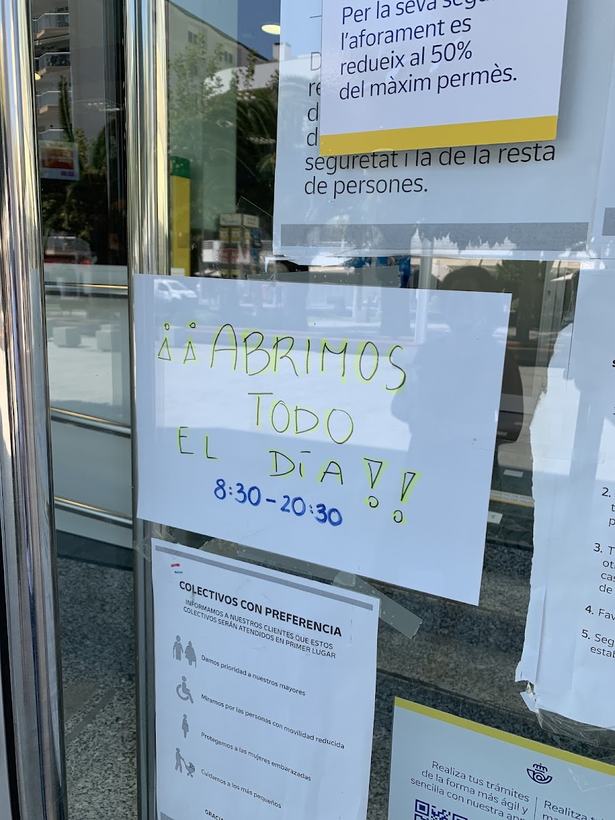 Per la seva
l'aforament es
redueix al 50%
del màxim permès.
seguretat i la de la resta
de persones.
¡¡ABRIMOS
TODO
EL DÍA!!
8:30-20:30
COLECTIVOS CON PREFERENCIA
INFORMAMOS A NUESTROS CLIENTES QUE ESTOS
COLECTIVOS SERÁN ATENDIDOS EN PRIMER LUGAR
Damos prioridad a nuestros mayores
Miramos por las personas con movilidad reducida
Protegemos a las mujeres embarazadas
Cuidamos a los más pequeños
2.
3.
4. Fav
5. Seg
estab
Realiza tus trámites
de la forma más ágil y
sencilla con nuestra app
Realitz